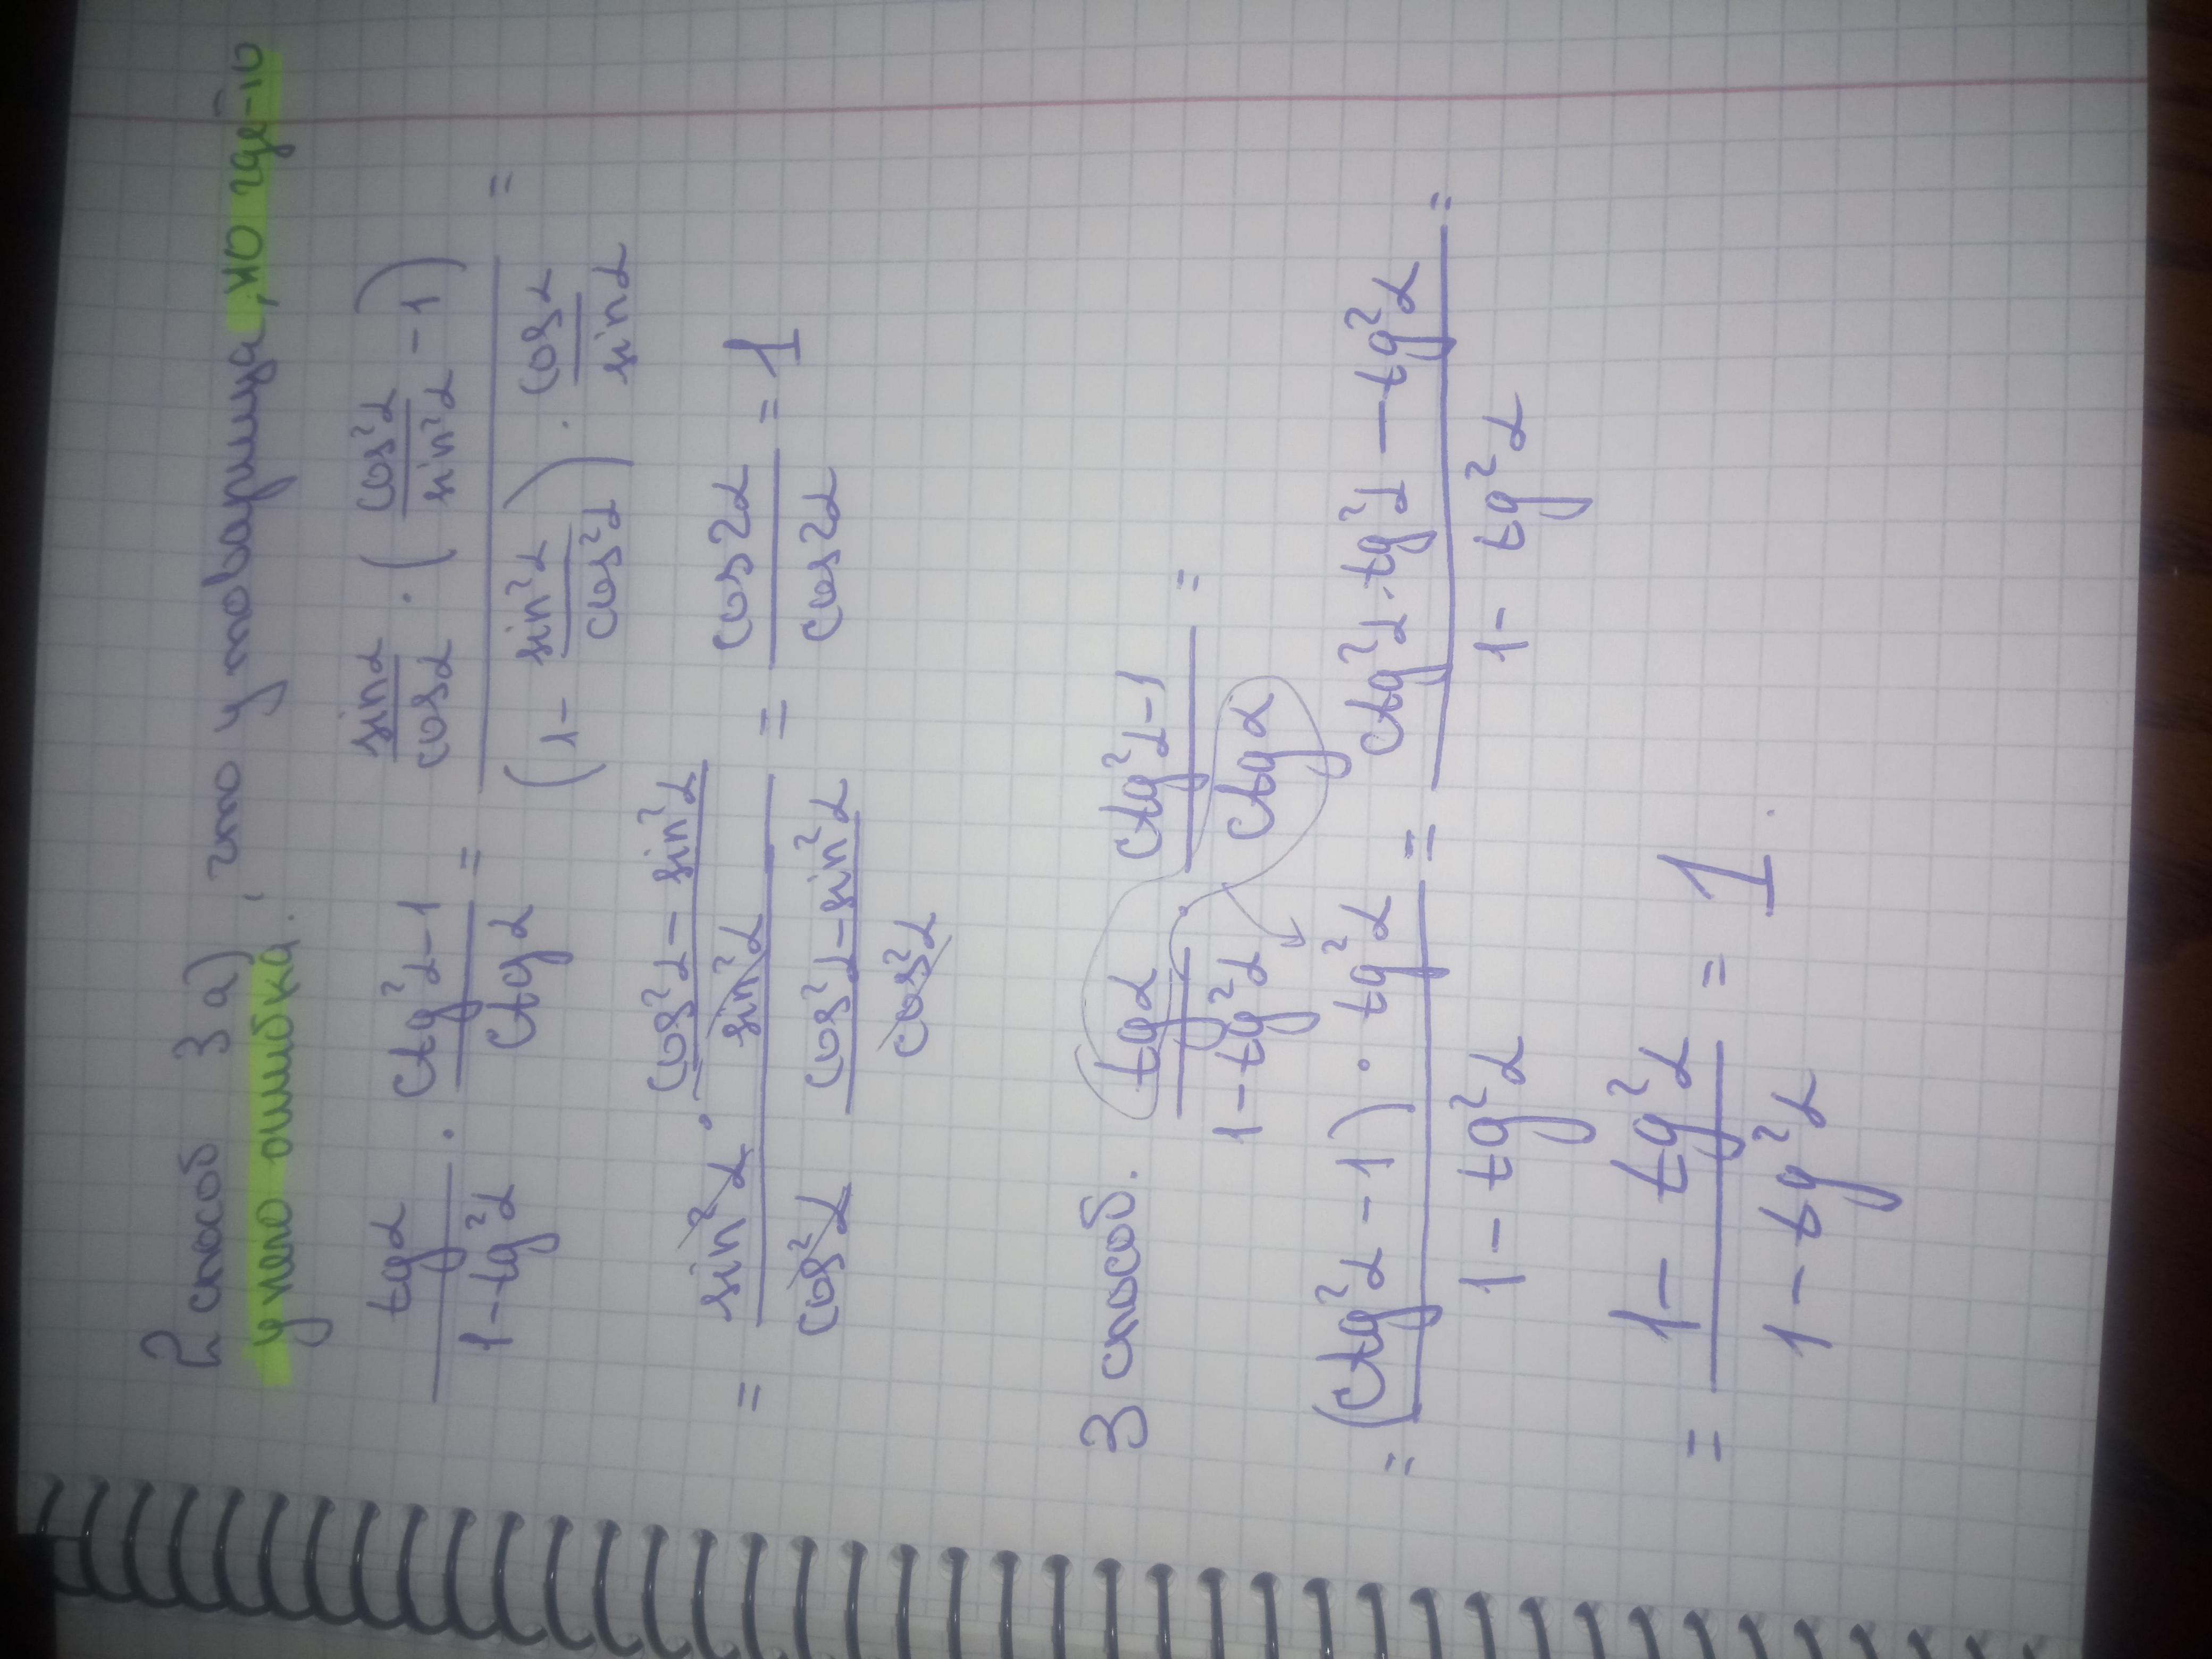 2 способ 3 а), что у товарища, но где-то
у него ошибка.
tgα / (1 - tg²α) · (ctg²α - 1) / ctgα = (sinα / cosα · (cos²α / sin²α - 1)) / ((1 - sin²α / cos²α) · cosα / sinα) =
= (sin²α · (cos²α - sin²α) / sin²α) / (cos²α · (cos²α - sin²α) / cos²α) = cos2α / cos2α = 1
3 способ. tgα / (1 - tg²α) · (ctg²α - 1) / ctgα =
= ((ctg²α - 1) · tg²α) / (1 - tg²α) = (ctg²α · tg²α - tg²α) / (1 - tg²α) =
= (1 - tg²α) / (1 - tg²α) = 1.